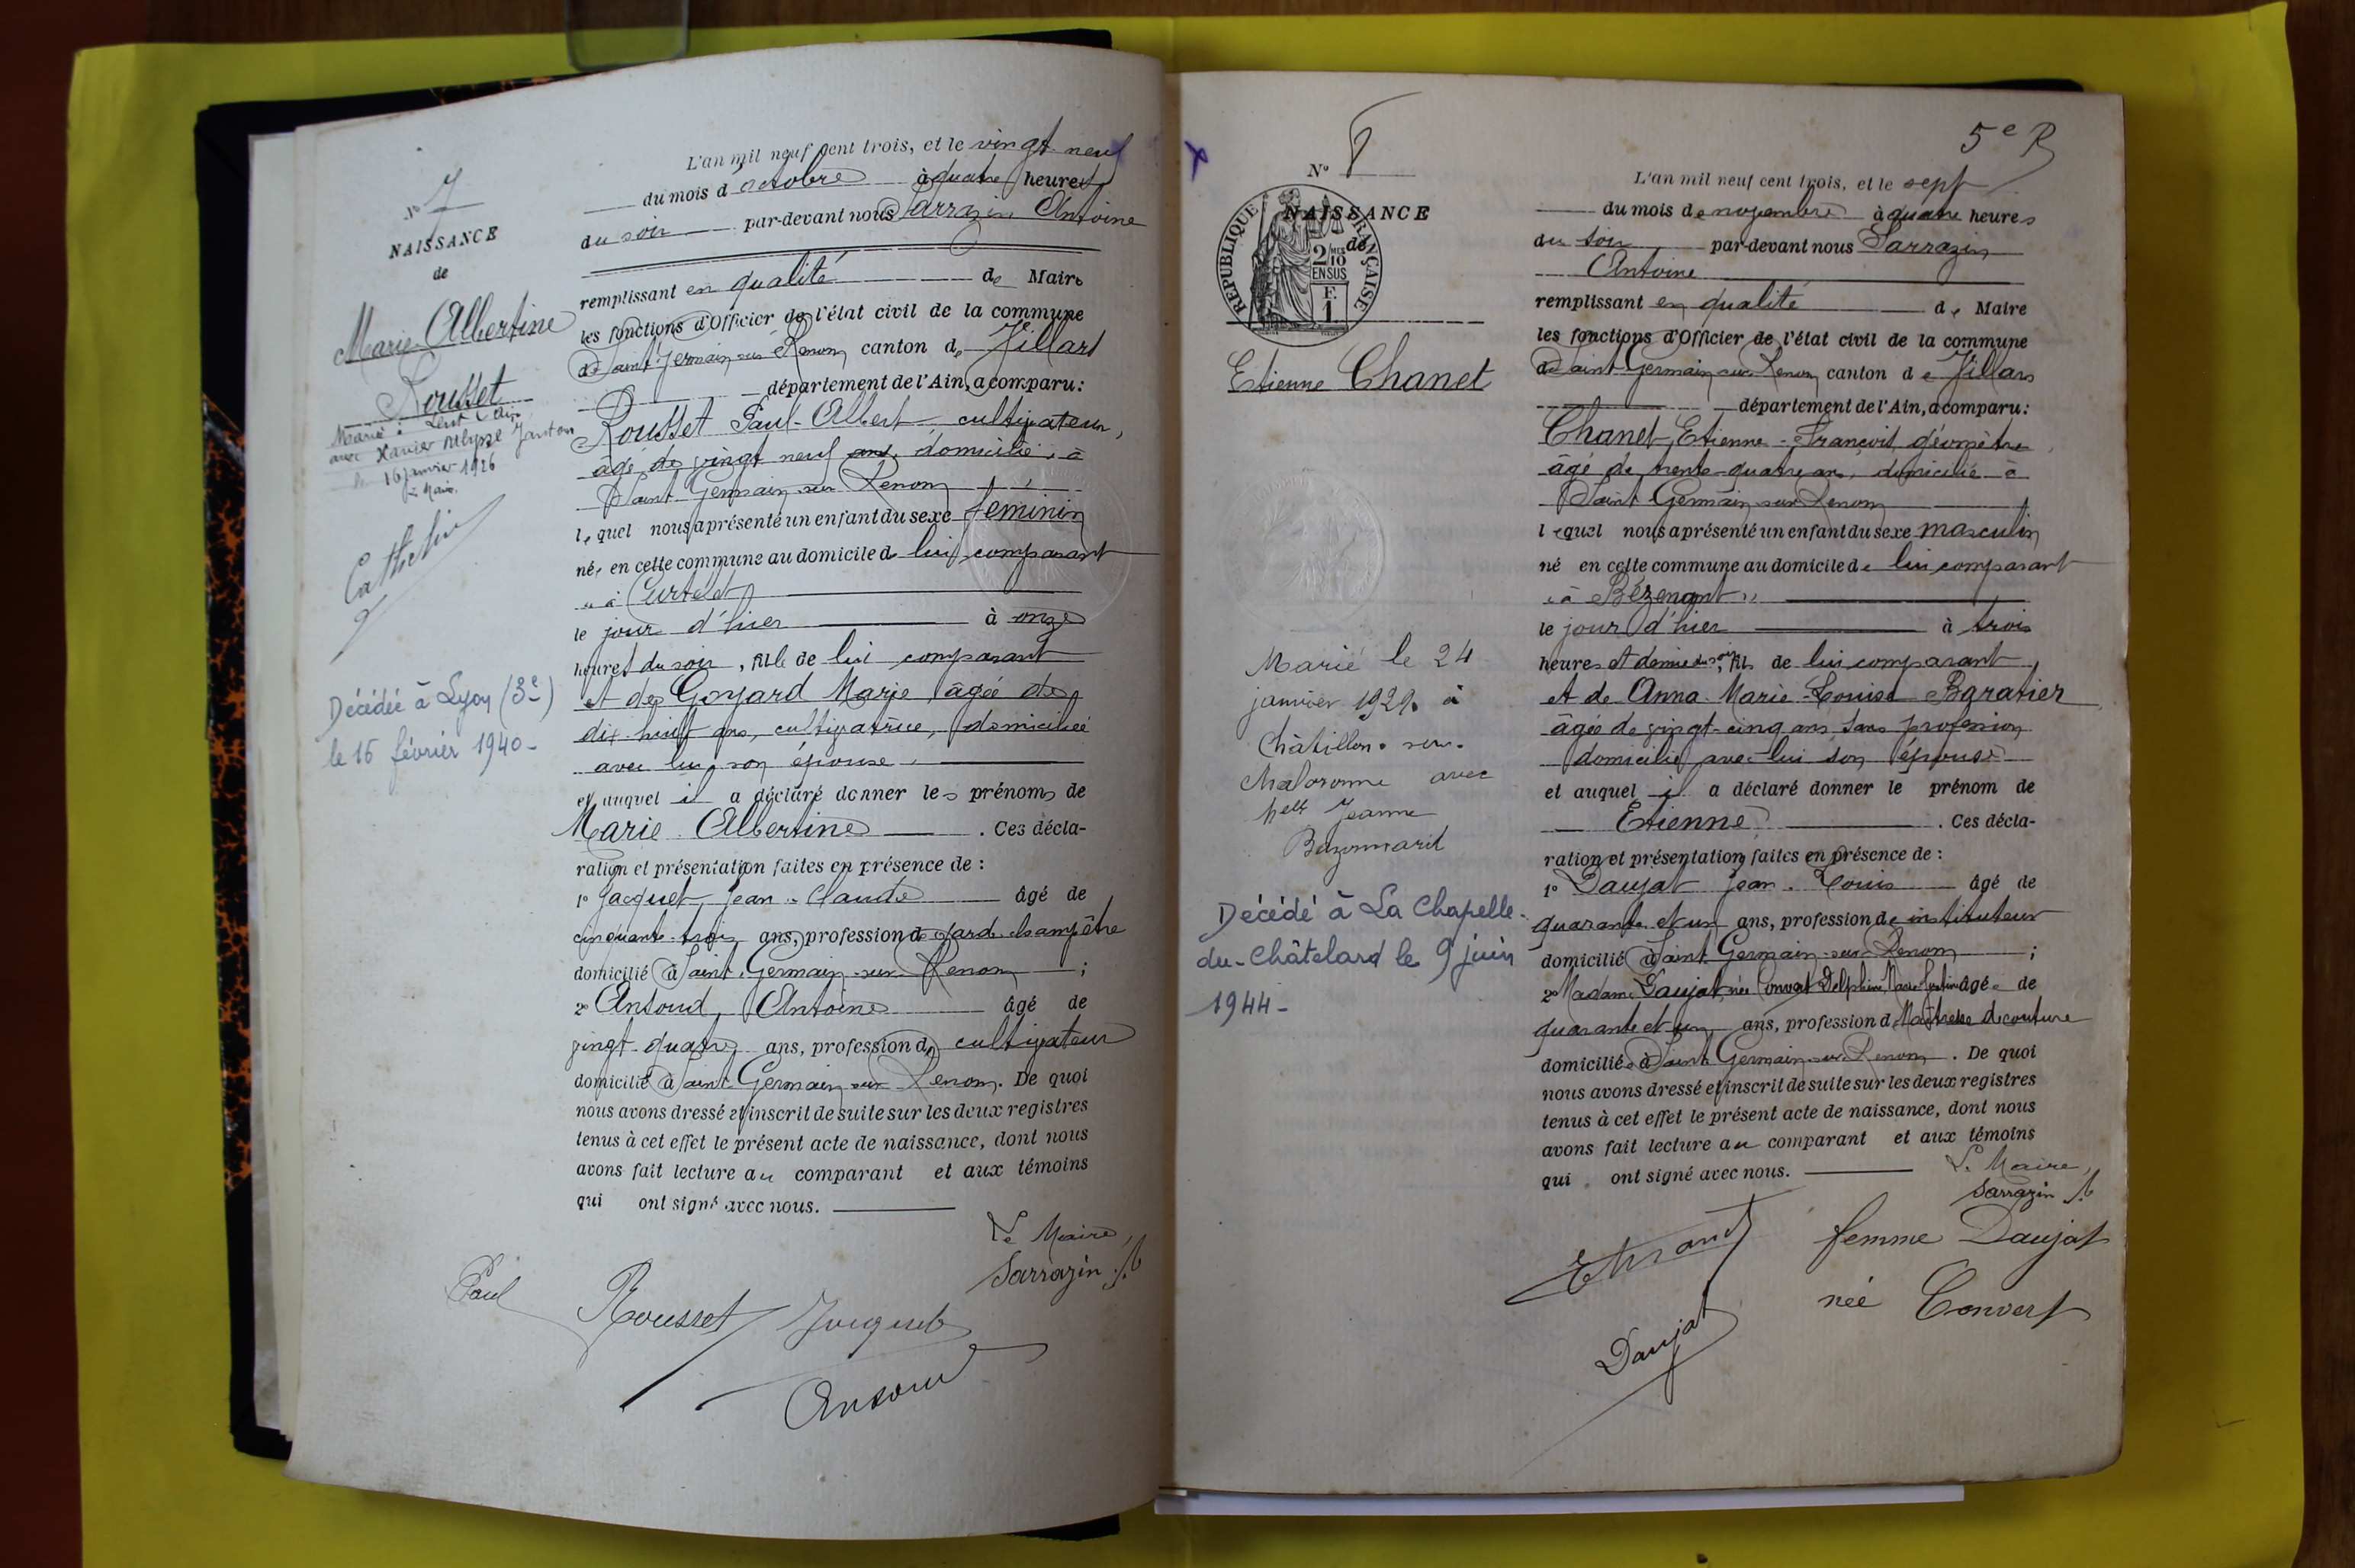 N° 7
NAISSANCE
de
Marie Albertine
Rousset
Marié à Lent (Ain)
avec Xavier Janton
le 16 janvier 1926
Décédée à Lyon (3e)
le 16 février 1940-
L'an mil neuf cent trois, et le vingt neuf
du mois d'octobre à quatre heures
du soir par-devant nous Sarrazin Antoine
remplissant en qualité de Maire
les fonctions d'Officier de l'état civil de la commune
de Saint Germain sur Renom canton de Villars
département de l'Ain, a comparu:
Rousset Paul-Albert, cultivateur,
âgé de vingt neuf ans, domicilié à
Saint Germain sur Renom
lequel nous a présenté un enfant du sexe féminin
née en cette commune au domicile de lui comparant
"à Curtelet
le jour d'hier à onze
heures du soir, fille de lui comparant
et de Goyard Marie âgée de
dix huit ans, cultivatrice, domiciliée
avec lui, son épouse.
et auquel il a déclaré donner les prénoms de
Marie Albertine. Ces décla-
ration et présentation faites en présence de :
1° Jacquet, Jean-Claude âgé de
cinquante-trois ans, profession de garde-champêtre
domicilié à Saint-Germain-sur-Renom ;
2° Ansoud, Antoine âgé de
vingt-quatre ans, profession de cultivateur
domicilié à Saint-Germain-sur-Renom. De quoi
nous avons dressé et inscrit de suite sur les deux registres
tenus à cet effet le présent acte de naissance, dont nous
avons fait lecture au comparant et aux témoins
qui ont signé avec nous.
Le Maire,
Sarrazin A
Paul Rousset Jacquet
Ansoud
5e R
N° 8
NAISSANCE
de
REPUBLIQUE FRANÇAISE
2/10 EN SUS
F. 1
Etienne Chanet
Marié le 24
janvier 1929 à
Châtillon-sur-
Chalaronne avec
Melle Jeanne
Décédé à La Chapelle-
du-Châtelard le 9 juin
1944-
L'an mil neuf cent trois, et le sept
du mois de novembre à quatre heures
du soir par-devant nous Sarrazin
Antoine
remplissant en qualité de Maire
les fonctions d'Officier de l'état civil de la commune
de Saint Germain sur Renom canton de Villars
département de l'Ain, a comparu:
Chanet, Etienne-François, géomètre
âgé de trente-quatre ans, domicilié à
Saint Germain sur Renom
lequel nous a présenté un enfant du sexe masculin
né en cette commune au domicile de lui comparant
"à Bézenant"
le jour d'hier à trois
heures et demie du soir, fils de lui comparant,
et de Anna-Marie-Louise Baratier
âgée de vingt-cinq ans, sans profession
domicilié avec lui son épouse
et auquel il a déclaré donner le prénom de
Etienne. Ces décla-
ration et présentation faites en présence de :
1° Daujat Jean-Louis âgé de
quarante et un ans, profession de instituteur
domicilié à Saint Germain-sur-Renom ;
2° Madame Daujat, née Convert Delphine, Marie âgée de
quarante et un ans, profession de Maîtresse de couture
domiciliée à Saint Germain-sur-Renom. De quoi
nous avons dressé et inscrit de suite sur les deux registres
tenus à cet effet le présent acte de naissance, dont nous
avons fait lecture au comparant et aux témoins
qui ont signé avec nous.
Le Maire,
Sarrazin A
femme Daujat
née Convert
Daujat